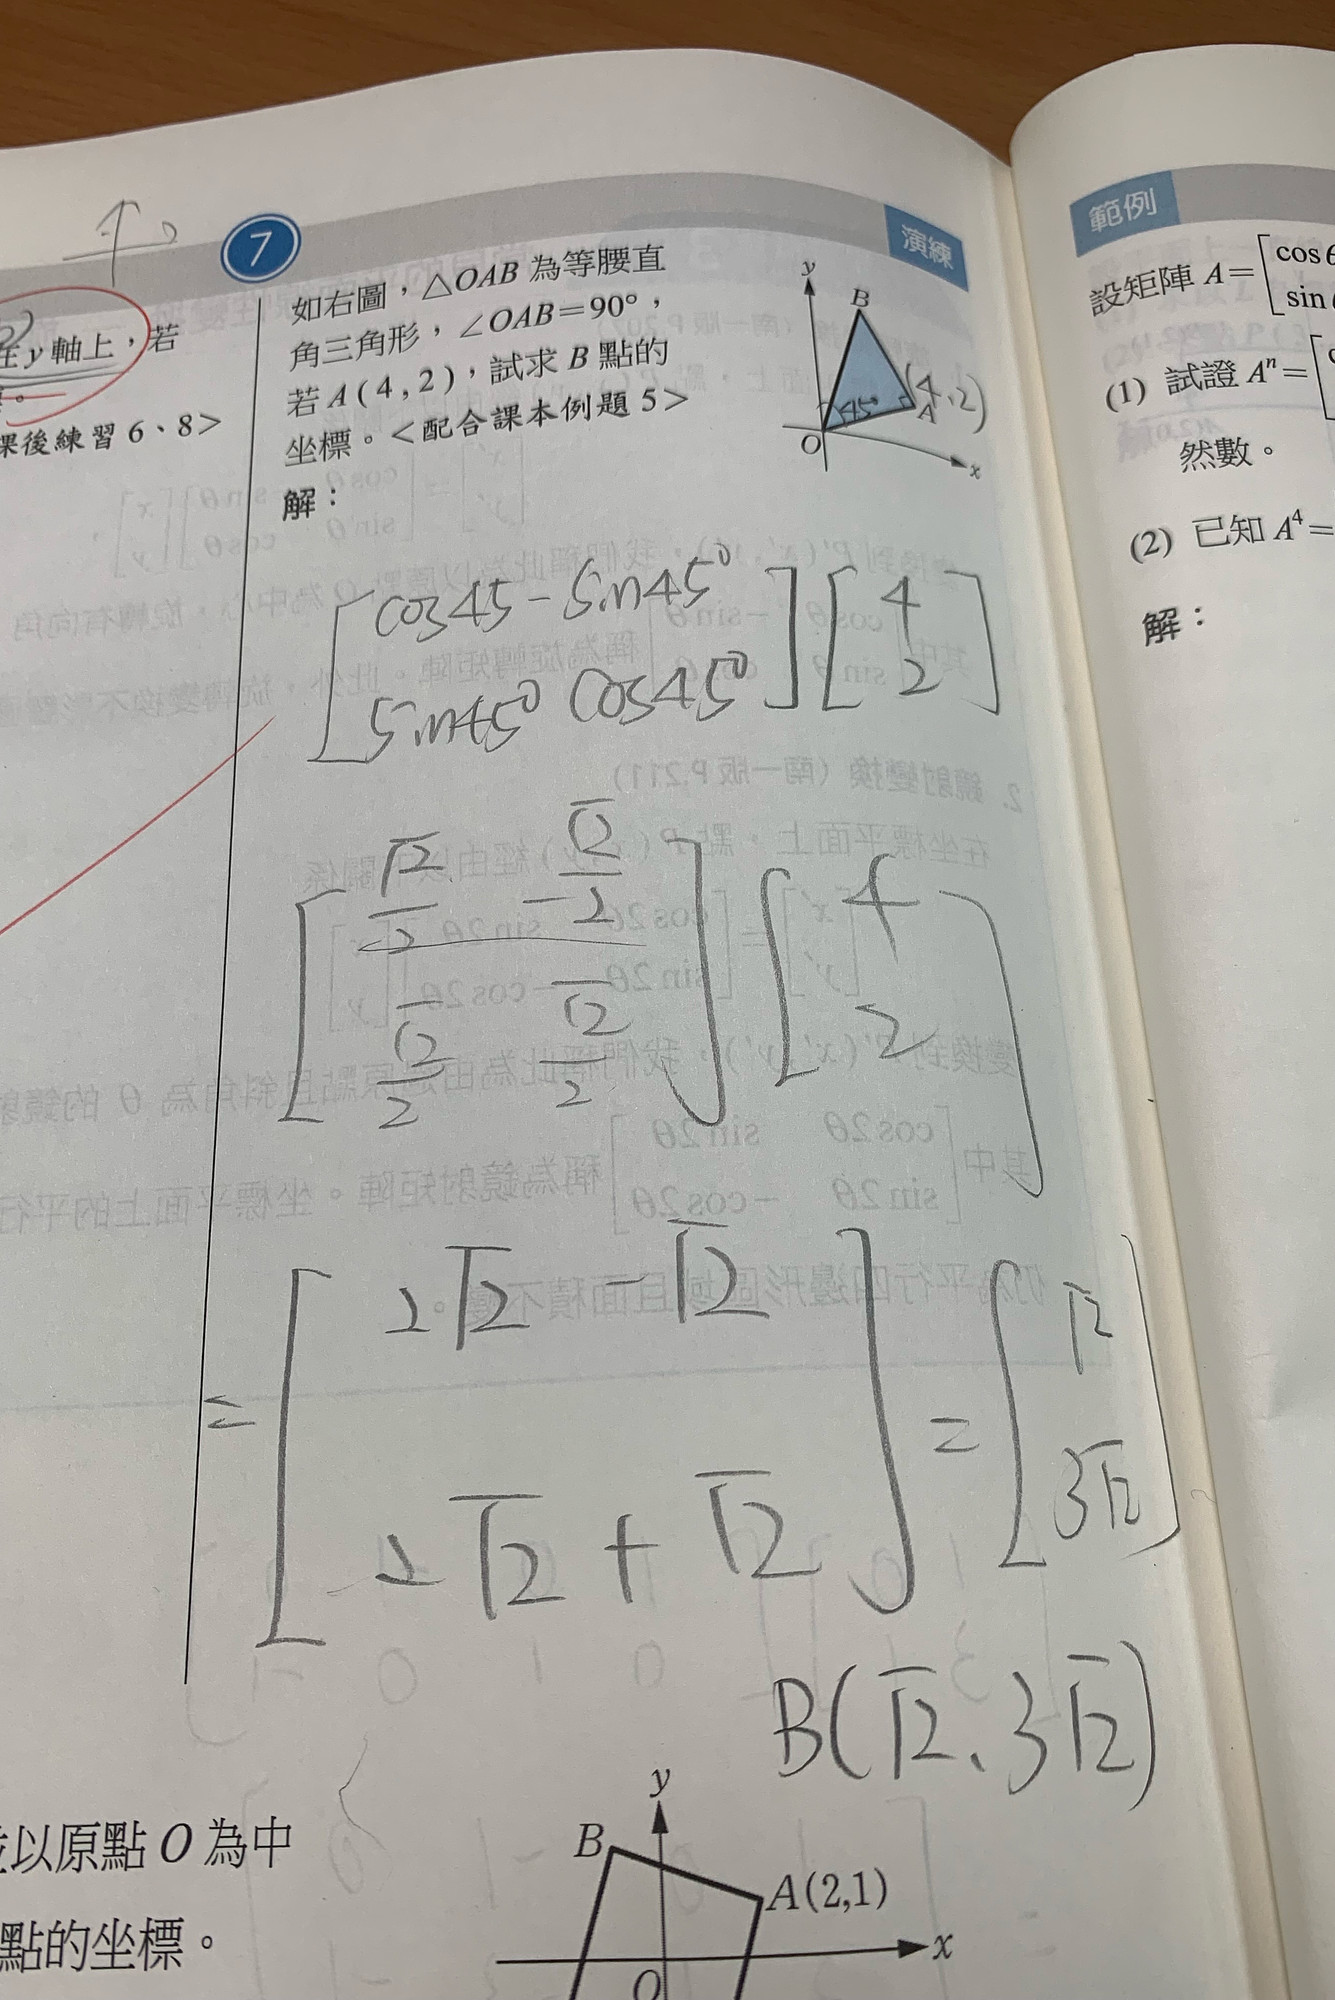 在y軸上，若
課後練習 6、8>
7
演練
如右圖，△OAB 為等腰直
角三角形，∠OAB=90°，
若 A(4,2)，試求 B 點的
坐標。<配合課本例題 5>
解：
y
B
(4,2)
45°
A
O
x
[cos45 -sin45°] [4]
[sin45° cos45°] [2]
[√2/2 -√2/2] [4]
[√2/2 √2/2] [2]
= [2√2 - √2] = [√2]
[2√2 + √2] [3√2]
B(√2、3√2)
以原點 O 為中
點的坐標。
y
B
A(2,1)
x
O
範例
設矩陣 A=[cosθ
sin
(1) 試證 Aⁿ=
然數。
(2) 已知 A⁴=
解：